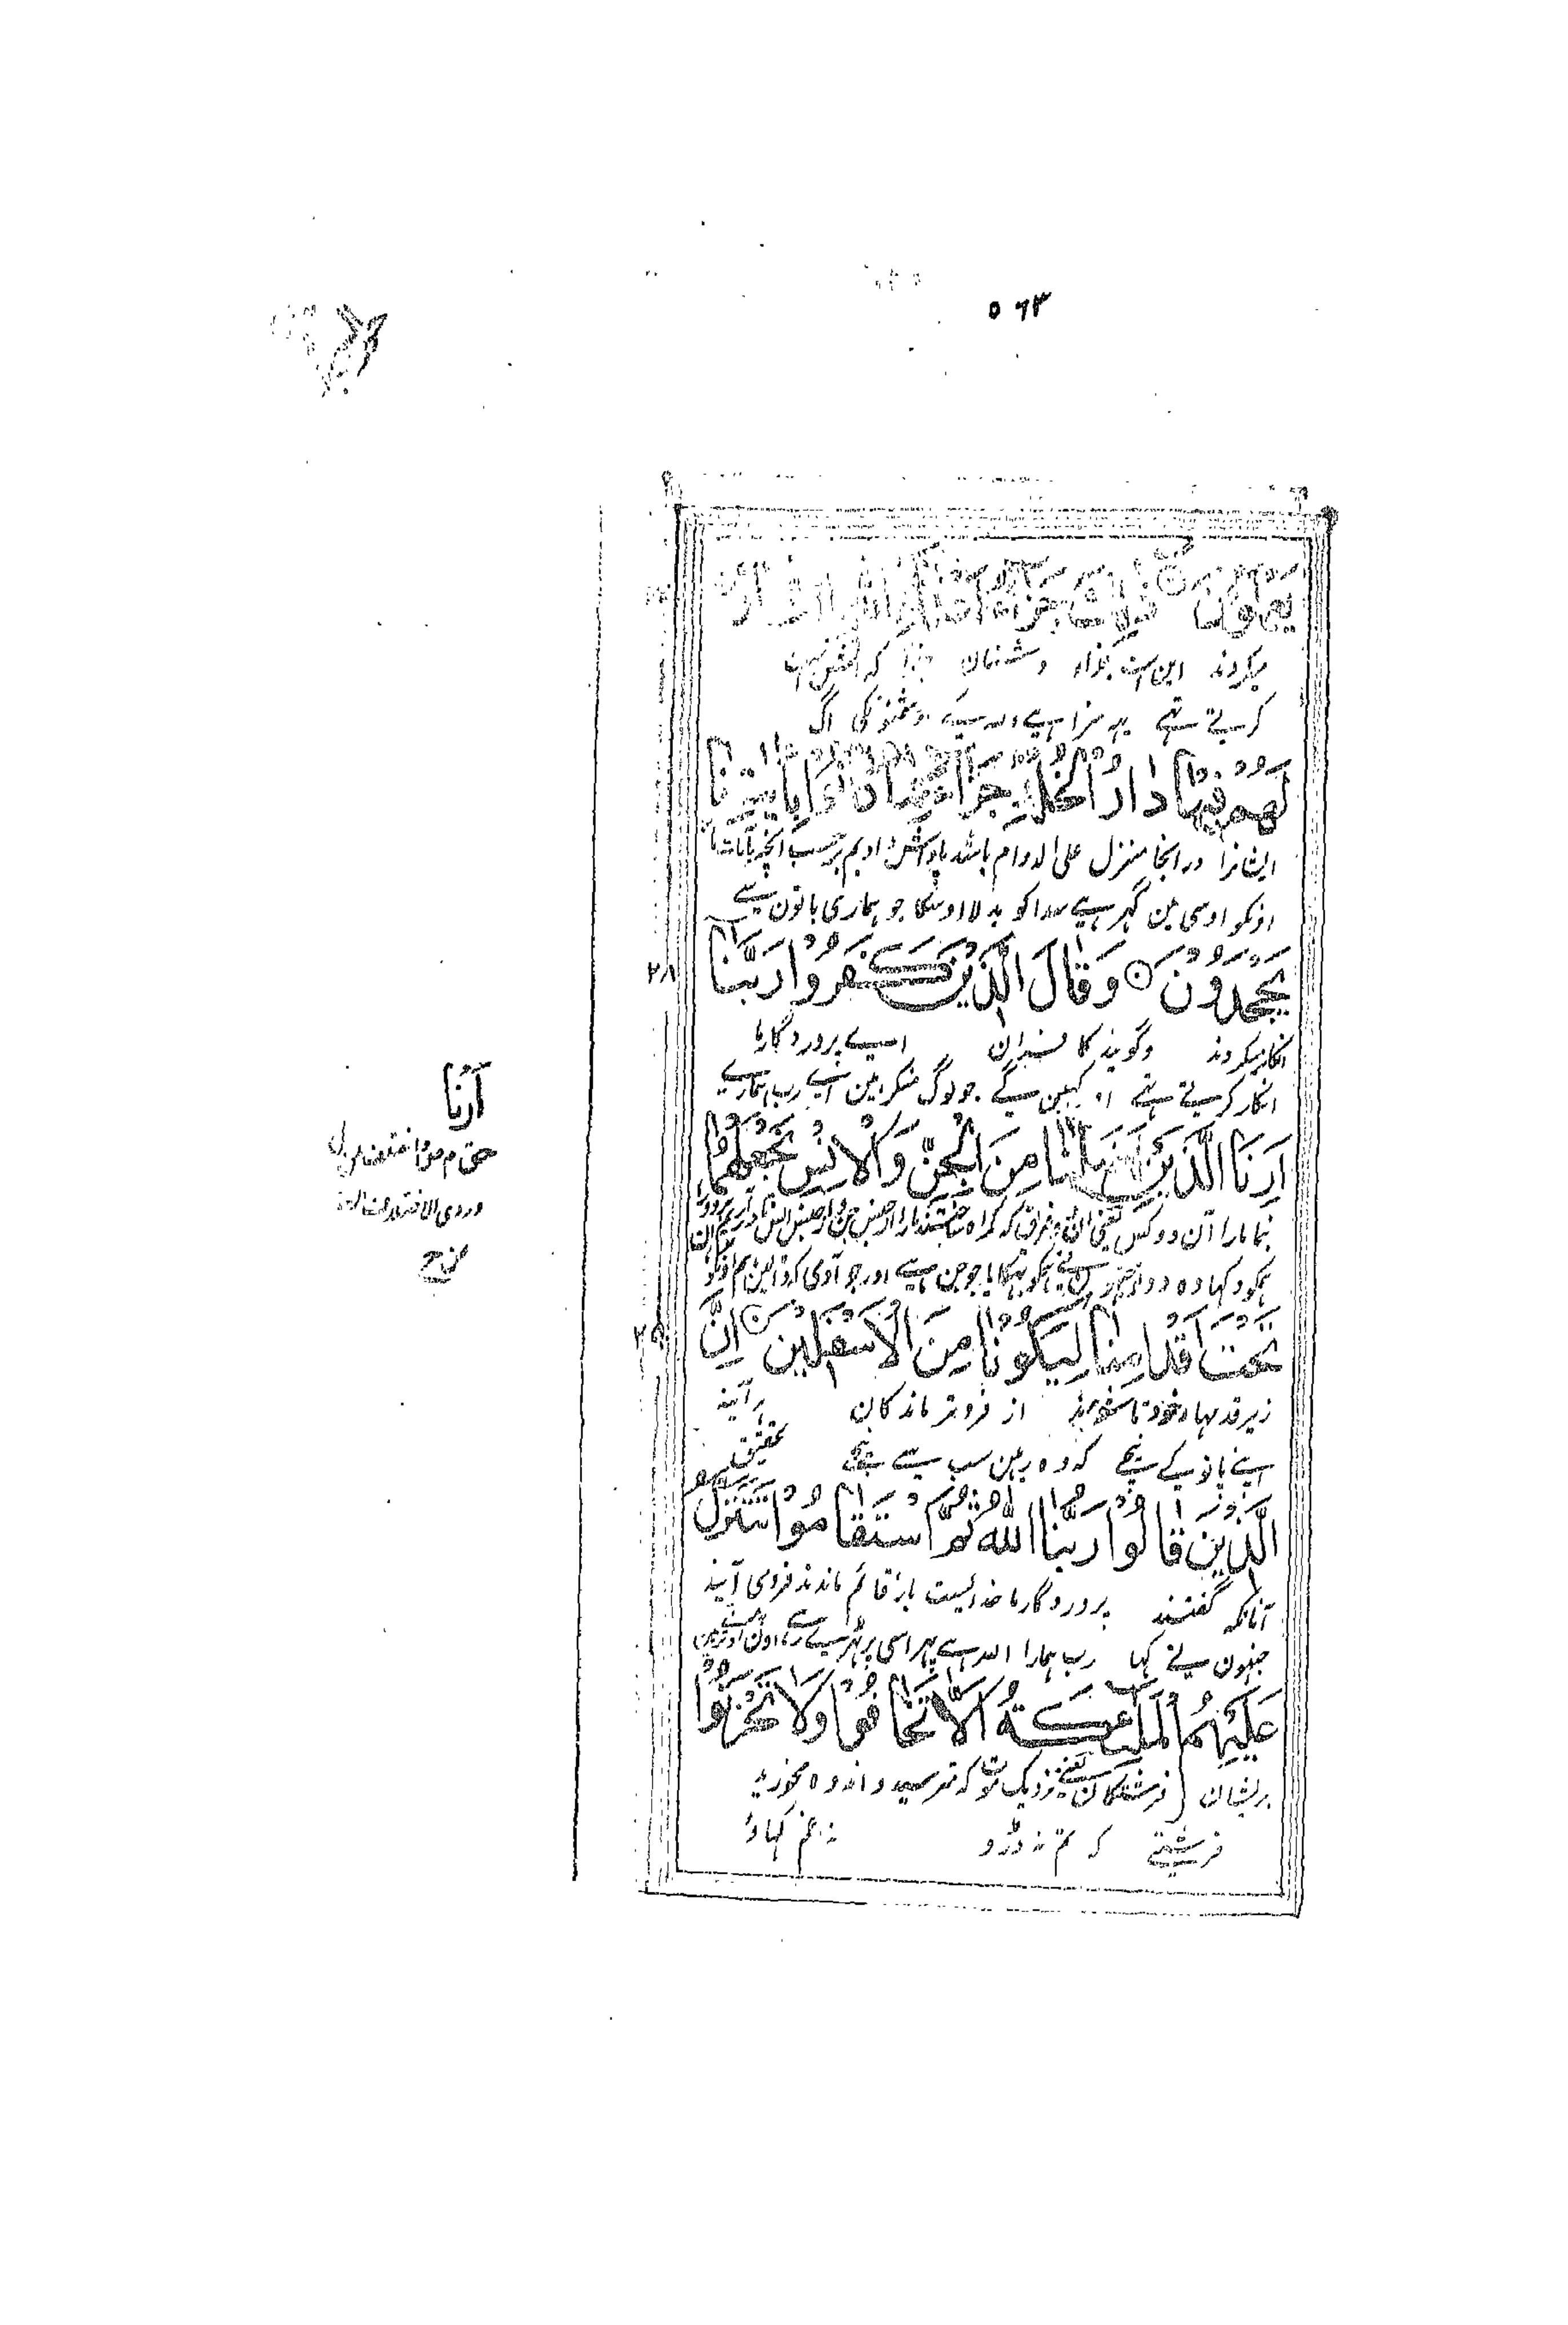 ٥٦٣
يَعْمَلُونَ ۝ ذٰلِكَ جَزَآءُ اَعْدَآءِ اللّٰهِ النَّارُ
میکردند این است جزاء دشمنان خدا که آتش است
کرتے تہے یہہ سزا ہے اللہ کے دشمنونکی اگ
لَهُمْ فِيْهَا دَارُ الْخُلْدِ جَزَآءً بِمَا كَانُوْا بِاٰيٰتِنَا
ایشانرا در انجا منزل علی الدوام باشد پاداش دادیم برحسب آنچہ بآیات ما
اونکو اوسی مین گہر ہے سدا کو بدلا اوسکا جو ہماری باتون سے
يَجْحَدُوْنَ ۝ وَقَالَ الَّذِيْنَ كَفَرُوْا رَبَّنَا
٢٨
انکار میکردند وگویند کافران اے پروردگار ما
انکار کرتے تہے اور کہین گے جو لوگ منکر ہین اے رب ہمارے
اَرِنَا الَّذَيْنِ اَضَلّٰنَا مِنَ الْجِنِّ وَالْاِنْسِ نَجْعَلْهُمَا
بنما مارا آن دو کس یعنی که گمراه ساختند مارا از جنس جن و از جنس انس
ہمکو دکہا وہ دو جنہون نے ہمکو بہکایا جو جن ہے اور جو آدمی کہ ڈالین ہم اونکو
تَحْتَ اَقْدَامِنَا لِيَكُوْنَا مِنَ الْاَسْفَلِيْنَ ۝ اِنَّ
٢٩
زیر قدمهاء خود تا شوند از فروتر ماندکان ہرآینہ
اپنے پانو کے نیچے کہ وہ رہین سب سے نیچے تحقیق
الَّذِيْنَ قَالُوْا رَبُّنَا اللّٰهُ ثُمَّ اسْتَقَامُوْا تَتَنَزَّلُ
آنانکہ گفتند پروردگار ما خدائیست باز قائم ماندند فرودمی آیند
جنہون نے کہا رب ہمارا اللہ ہے پہر اسی پر ٹہرے رہے اون پر اوترتے ہین
عَلَيْهِمُ الْمَلٰٓئِكَةُ اَلَّا تَخَافُوْا وَلَا تَحْزَنُوْا
برایشان فرشتگان یعنے نزدیک موت کہ مترسید و اندوہ مخورید
فرشتے کہ تم نہ ڈرو نہ غم کہاؤ
اَرْنَا